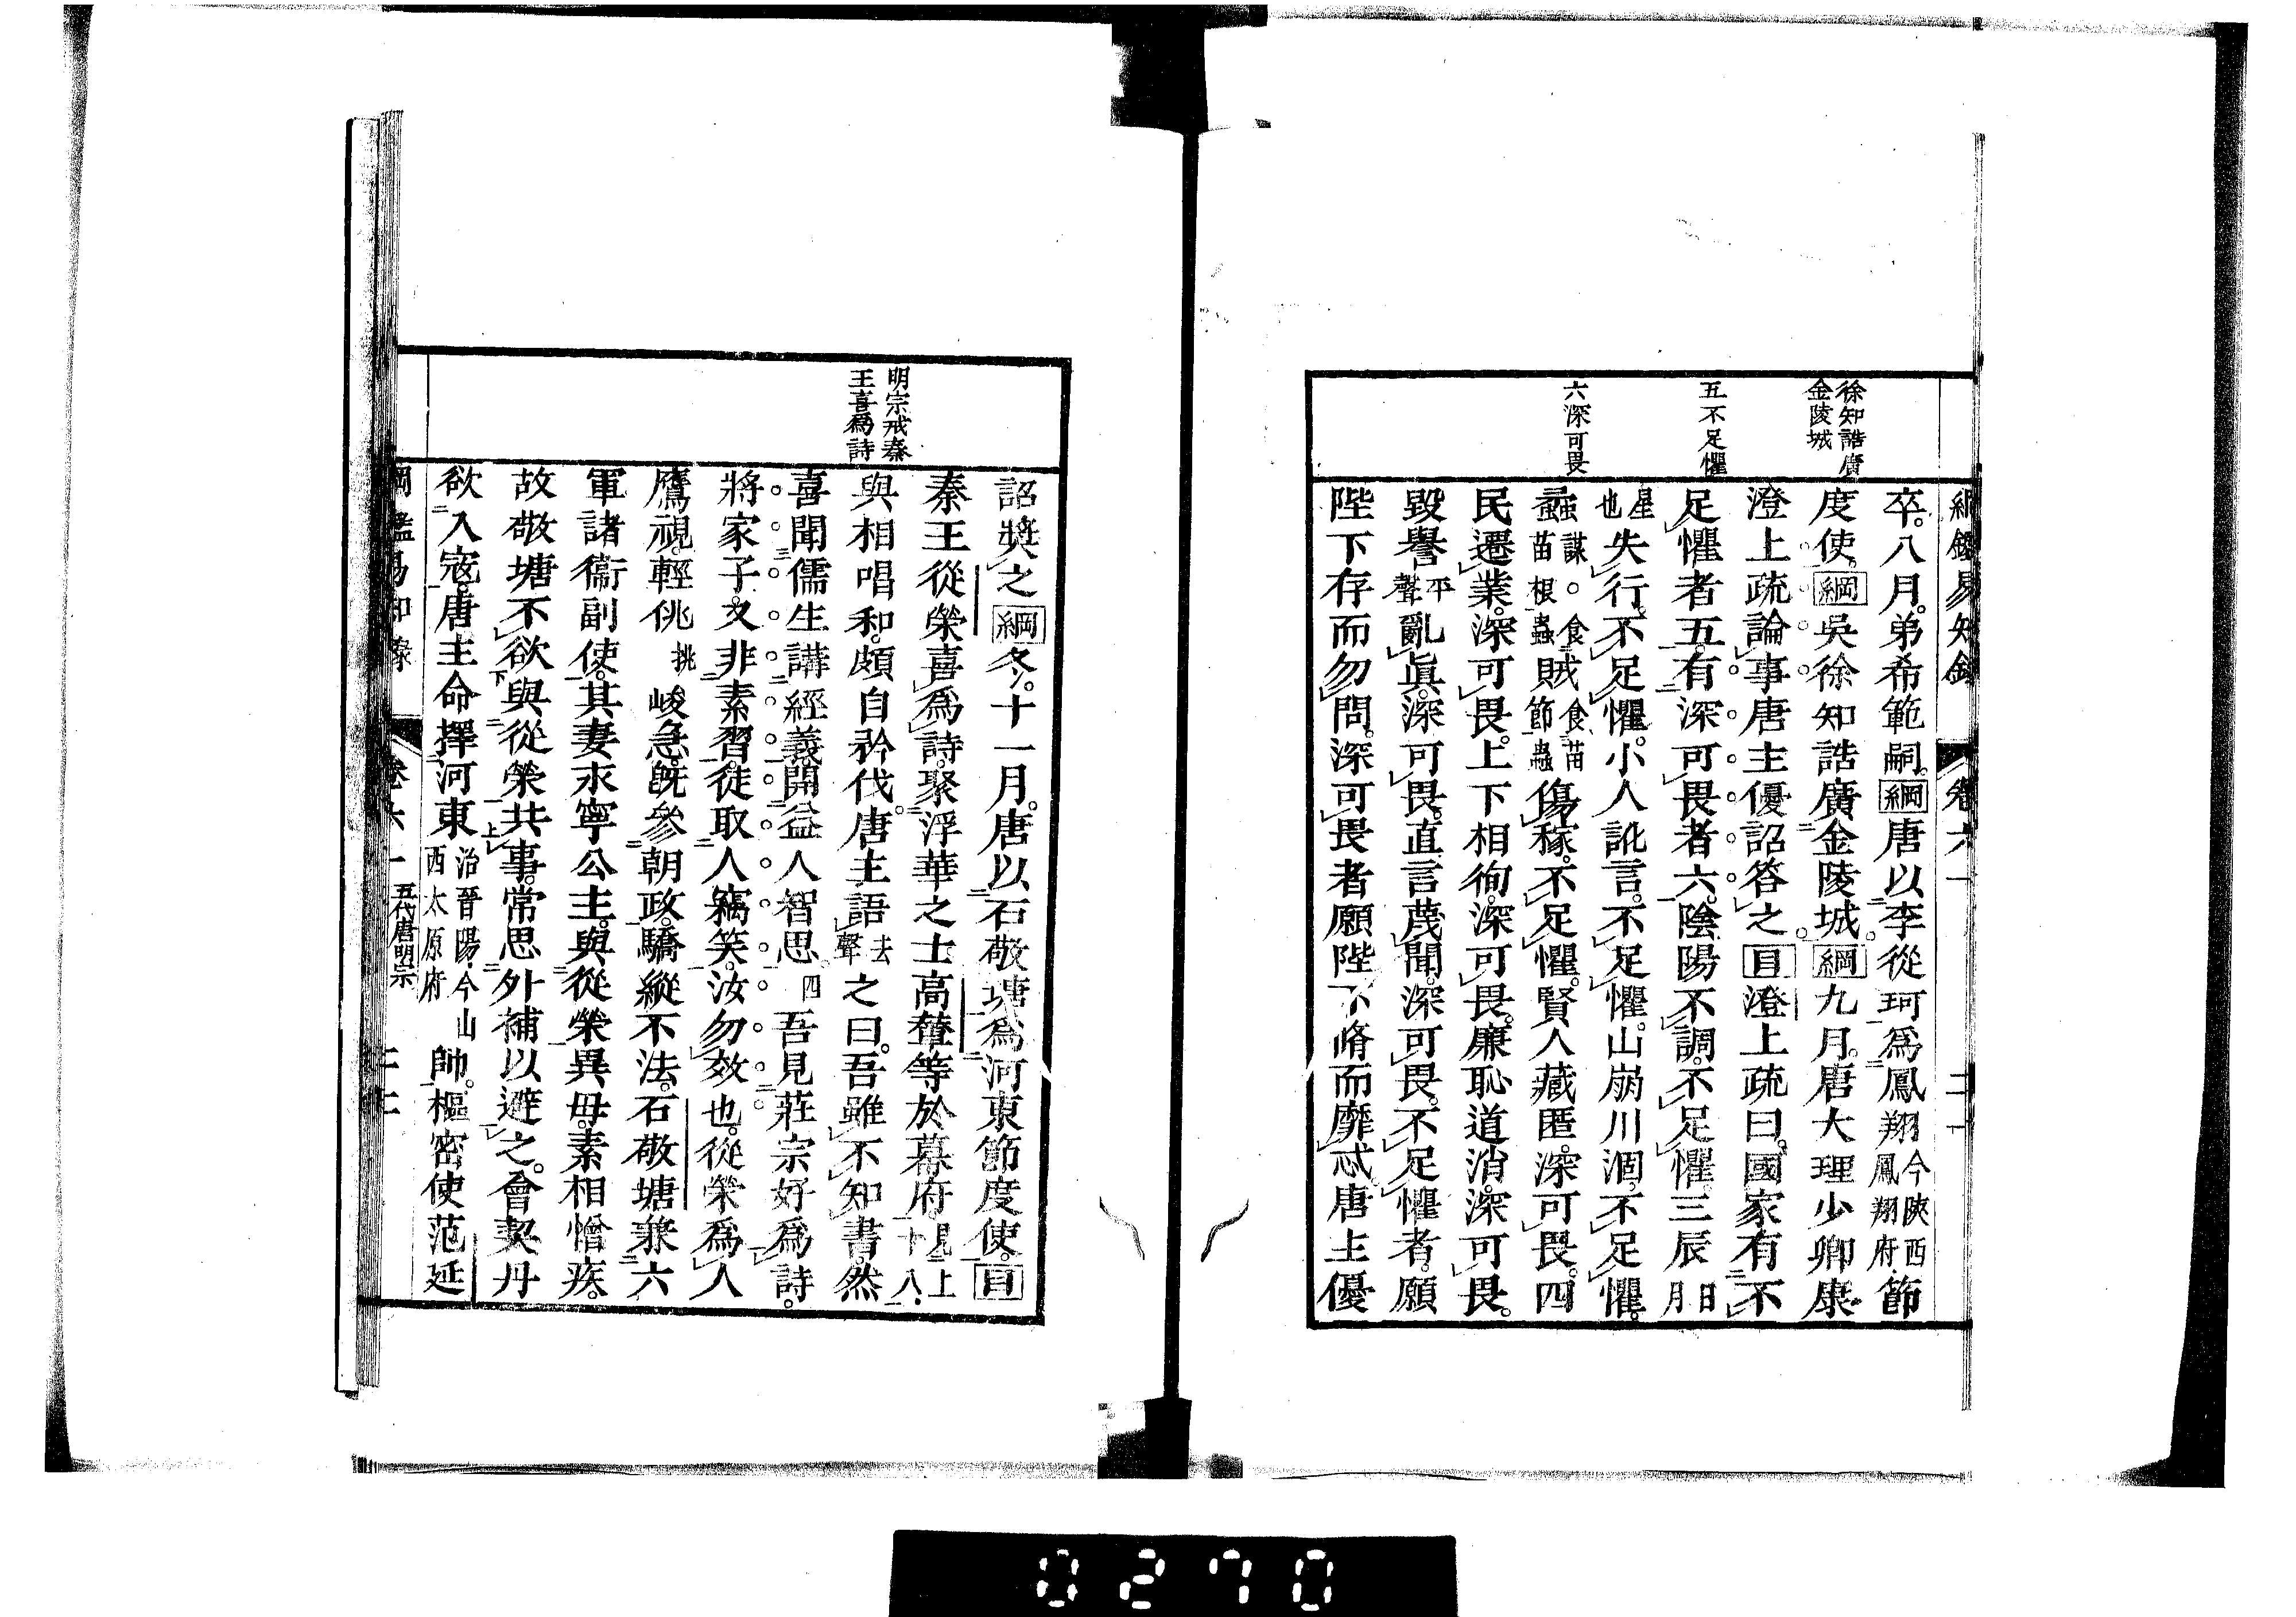 綱鑑易知錄 卷六一
徐知誥廣
金陵城
五不足懼
六深可畏
卒。八月。弟希範嗣。綱唐以李從珂爲鳳翔今陝西鳳翔府。節
度使。綱吳徐知誥廣金陵城。綱九月。唐大理少卿康
澄上疏論事唐主優詔答之目澄上疏曰。國家有不
足懼者五。有深可畏者六。陰陽不調。不足懼。三辰日月
星也失行。不足懼。小人訛言。不足懼。山崩川涸。不足懼。
蟊謀。食苗根蟲賊食苗節蟲傷稼。不足懼。賢人藏匿。深可畏。四
民遷業。深可畏。上下相徇。深可畏。廉恥道消。深可畏。
毀譽平聲亂眞。深可畏。直言蔑聞。深可畏。不足懼者。願
陛下存而勿問。深可畏者願陛下脩而靡忒。唐主優
明宗戒秦
王喜爲詩
詔奬之綱冬。十一月。唐以石敬塘爲河東節度使。目
秦王從榮喜爲詩。聚浮華之士高輦等於幕府見上十八。
與相唱和。頗自矜伐。唐主語去聲之曰。吾雖不知書。然
喜聞儒生講經義。開益人智思四吾見莊宗好爲詩。
將家子。文非素習。徒取人竊笑。汝勿效也。從榮爲人
鷹視。輕佻挑峻急。旣參朝政。驕縱不法。石敬塘兼六
軍諸衞副使。其妻永寧公主。與從榮異母。素相憎疾。
故敬塘不欲與從榮共事。常思外補以避之。會契丹
欲入寇。唐主命擇河東治晉陽。今山西太原府帥。樞密使范延
綱鑑易知錄 卷六一 五代唐明宗